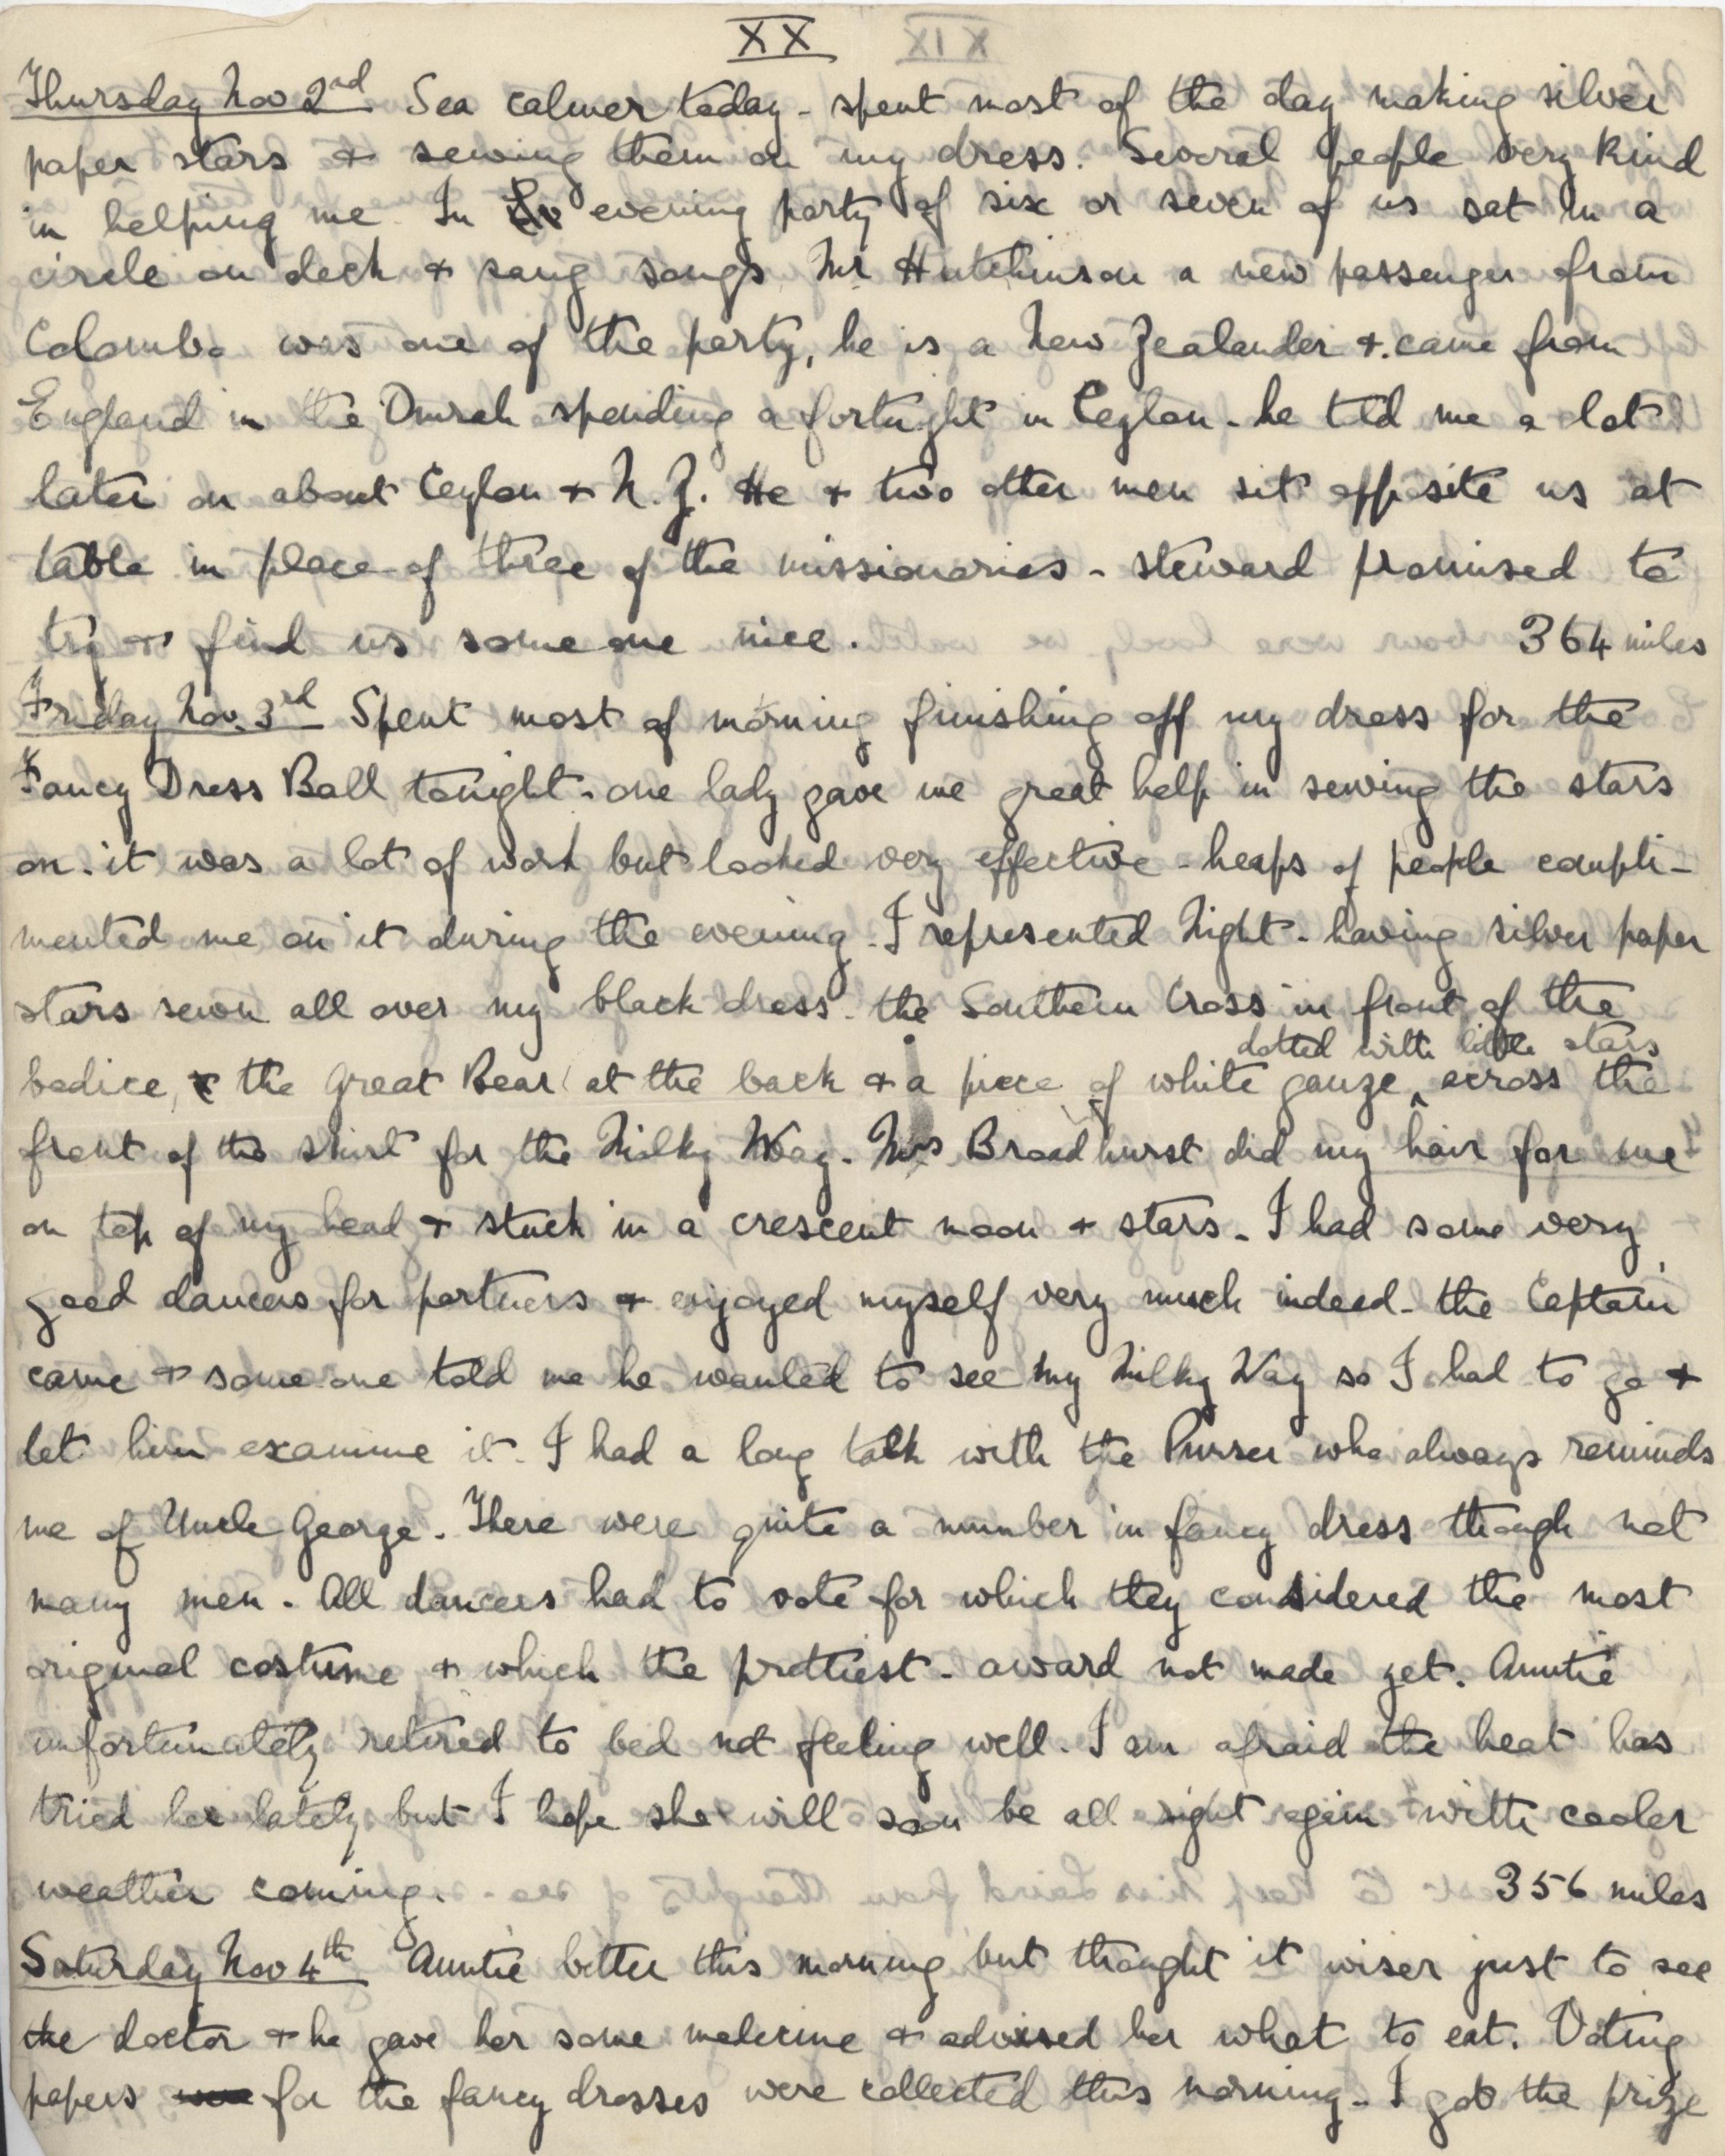 XX
Thursday Nov 2nd Sea calmer today - spent most of the day making silver
paper stars & sewing them on my dress. Several people very kind
in helping me. In the evening party of six or seven of us sat in a
circle on deck & sang songs. Mr Hutchinson a new passenger from
Colombo was one of the party, he is a New Zealander & came from
England in the Omrah spending a fortnight in Ceylon - he told me a lot
later on about Ceylon & N.Z. He & two other men sit opposite us at
table in place of three of the missionaries - steward promised to
try & find us someone nice. 364 miles
Friday Nov. 3rd Spent most of morning finishing off my dress for the
Fancy Dress Ball tonight - one lady gave me great help in sewing the stars
on. it was a lot of work but looked very effective - heaps of people compli-
mented me on it during the evening. I represented Night - having silver paper
stars sewn all over my black dress - the Southern Cross in front of the
dotted with little stars
bodice, & the Great Bear at the back & a piece of white gauze ^ across the
front of the skirt for the Milky Way. Mrs Broadhurst did my hair for me
on top of my head & stuck in a crescent moon & stars - I had some very
good dancers for partners & enjoyed myself very much indeed - the Captain
came & some one told me he wanted to see my Milky Way so I had to go &
let him examine it. I had a long talk with the Purser who always reminds
me of Uncle George. There were quite a number in fancy dress though not
many men. All dancers had to vote for which they considered the most
original costume & which the prettiest - award not made yet. Auntie
unfortunately retired to bed not feeling well. I am afraid the heat has
tried her lately but I hope she will soon be all right again with cooler
weather coming. 356 miles
Saturday Nov 4th Auntie better this morning but thought it wiser just to see
the doctor & he gave her some medicine & advised her what to eat. Voting
papers for the fancy dresses were collected this morning - I got the prize